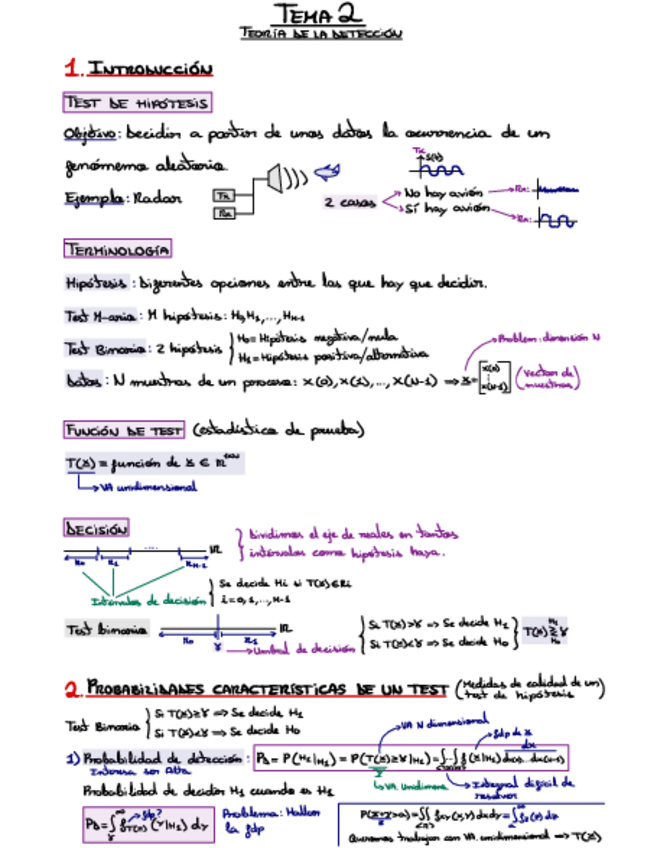 TEMA 2
TEORÍA DE LA DETECCIÓN
1. INTRODUCCIÓN
TEST DE HIPÓTESIS
Objetivo: Decidir a partir de unos datos la ocurrencia de un
fenómeno aleatorio.
Ejemplo: Radar
Tx
Rx
2 casos
Tx S(t)
No hay avión
Rx:
Sí hay avión
Rx:
TERMINOLOGÍA
Hipótesis: Diferentes opciones entre las que hay que decidir.
Test M-ario: M hipótesis: H0, H1, ..., HM-1
Test Binario: 2 hipótesis
H0 = Hipótesis negativa/nula
H1 = Hipótesis positiva/alternativa
Problem: dimensión N
Datos: N muestras de un proceso: x(0), x(1), ..., x(N-1) ⇒ x = [x(0) ⋮ x(N-1)] (Vector de muestras)
FUNCIÓN DE TEST (estadístico de prueba)
T(x) = función de x ∈ ℝ
VA unidimensional
DECISIÓN
.... ℝ
R0 R1 RM-1
Dividimos el eje de reales en tantos
intervalos como hipótesis haya.
Intervalos de decisión
Se decide Hi si T(x)∈Ri
i=0,1,...,M-1
Test binario
R0 γ R1 ℝ
Umbral de decisión
Si T(x)>γ ⇒ Se decide H1
Si T(x)<γ ⇒ Se decide H0
T(x) ≷ γ H1 H0
2. PROBABILIDADES CARACTERÍSTICAS DE UN TEST (Medidas de calidad de un test de hipótesis)
Test Binario
Si T(x)≥γ ⇒ Se decide H1
Si T(x)<γ ⇒ Se decide H0
VA N dimensional
fdp de x
1) Probabilidad de detección: PD = P(H1|H1) = P(T(x)≥γ|H1) = ∫...∫ f(x|H1) dx(0)...dx(N-1)
dx
Interesa ser Alta
VA Unidimens.
Integral difícil de resolver
Probabilidad de decidir H1 cuando es H1
PD = ∫γ^∞ fT(x)(γ|H1) dγ
fdp?
Problema: Hallar
la fdp
P(x+y>a) = ∬ fxy(x,y) dxdy = ∫ fz(z) dz
Queremos trabajar con VA unidimensional ⇒ T(x)